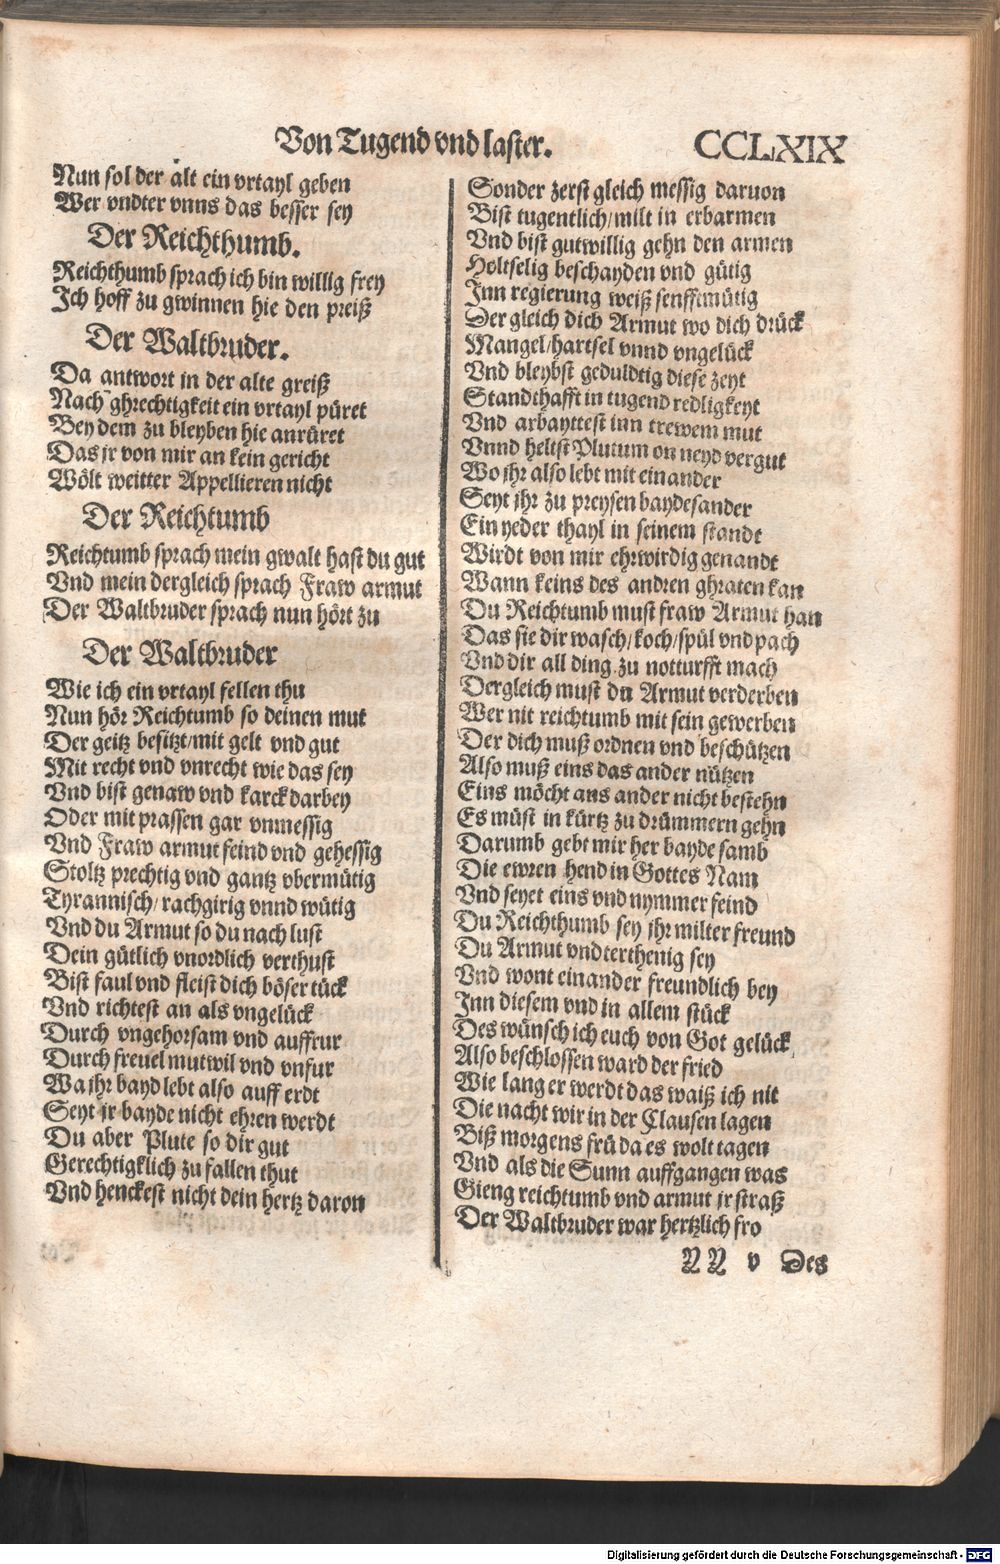 Von Tugend vnd laster. CCLXIX
Nun sol der alt ein vrtayl geben
Wer vndter vnns das besser sey
Der Reichthumb.
Reichthumb sprach ich bin willig frey
Ich hoff zu gwinnen hie den preiß
Der Waltbruder.
Da antwort in der alte greiß
Nach ghrechtigkeit ein vrtayl püret
Bey dem zu bleyben hie anrüret
Das jr von mir an kein gericht
Wölt weitter Appellieren nicht
Der Reichtumb
Reichtumb sprach mein gwalt hast du gut
Vnd mein dergleich sprach Fraw armut
Der Waltbruder sprach nun hört zu
Der Waltbruder
Wie ich ein vrtayl fellen thu
Nun hör Reichtumb so deinen mut
Der geitz besitzt/mit gelt vnd gut
Mit recht vnd vnrecht wie das sey
Vnd bist genaw vnd karck darbey
Oder mit prassen gar vnmessig
Vnd Fraw armut feind vnd gehessig
Stoltz prechtig vnd gantz vbermütig
Tyrannisch/ rachgirig vnnd wütig
Vnd du Armut so du nach lust
Dein gütlich vnordlich verthust
Bist faul vnd fleist dich böser tück
Vnd richtest an als vngelück
Durch vngehorsam vnd auffrur
Durch freuel mutwil vnd vnfur
Wa jhr bayd lebt also auff erdt
Seyt jr bayde nicht ehren werdt
Du aber Plute so dir gut
Gerechtigklich zu fallen thut
Vnd henckest nicht dein hertz daron
Sonder zerst gleich messig daruon
Bist tugentlich/milt in erbarmen
Vnd bist gutwillig gehn den armen
Holtselig beschayden vnd gütig
Inn regierung weiß senfftmütig
Der gleich dich Armut wo dich drück
Mangel/hartsel vnnd vngelück
Vnd bleybst geduldtig diese zeyt
Standthafft in tugend redligkeyt
Vnd arbayttest inn trewem mut
Vnnd heltst Plutum on neyd vergut
Wo jhr also lebt mit einander
Seyt jhr zu preysen baydesander
Ein yeder thayl in seinem standt
Wirdt von mir ehrwirdig genandt
Wann keins des andren ghraten kan
Du Reichtumb must fraw Armut han
Das sie dir wasch/koch/spül vnd pach
Vnd dir all ding zu notturfft mach
Dergleich must du Armut verderben
Wer nit reichtumb mit sein gewerben
Der dich muß ordnen vnd beschützen
Also muß eins das ander nützen
Eins möcht ans ander nicht bestehn
Es müst in kürtz zu drümmern gehn
Darumb gebt mir her bayde samb
Die ewren hend in Gottes Nam
Vnd seyet eins vnd nymmer feind
Du Reichthumb sey jhr milter freund
Du Armut vndterthenig sey
Vnd wont einander freundlich bey
Inn diesem vnd in allem stück
Des wünsch ich euch von Got gelück
Also beschlossen ward der fried
Wie lang er werdt das waiß ich nit
Die nacht wir in der Clausen lagen
Biß morgens frü da es wolt tagen
Vnd als die Sunn auffgangen was
Gieng reichtumb vnd armut jr straß
Der Waltbruder war hertzlich fro
NN v Des
Digitalisierung gefördert durch die Deutsche Forschungsgemeinschaft - DFG